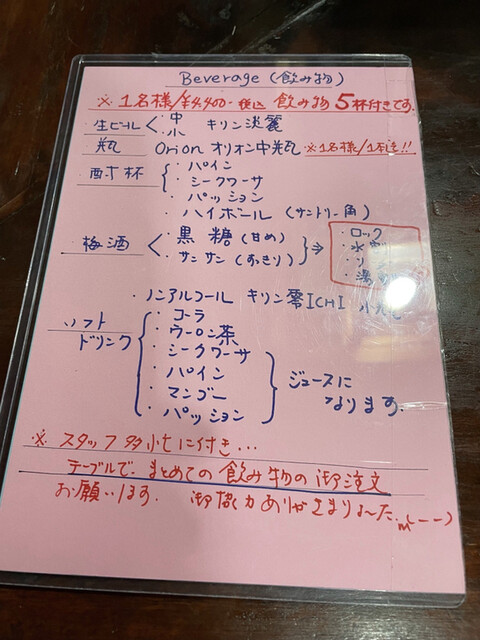 Beverage (飲み物)
※ 1名様/¥4,400-税込 飲み物5杯付きです。
生ビール < 中 小 キリン淡麗
瓶 Orion オリオン中瓶 ※1名様/1本迄!!
酎杯
・パイン
・シークワーサ
・パッション
・ハイボール (サントリー角)
梅酒 < ・黒糖(甘め) ・サンサン(すっきり) ⇒
・ロック
・水
・ソ
・湯
・ノンアルコール キリン零ICHI 小瓶
ソフトドリンク
・コーラ
・ウーロン茶
・シークワーサ
・パイン
・マンゴー
・パッション
ジュースに
なります。
※ スタッフ多忙に付き...
テーブルで、まとめての飲み物の御注文
お願います。 御協力ありがさまりよ〜た m(--)